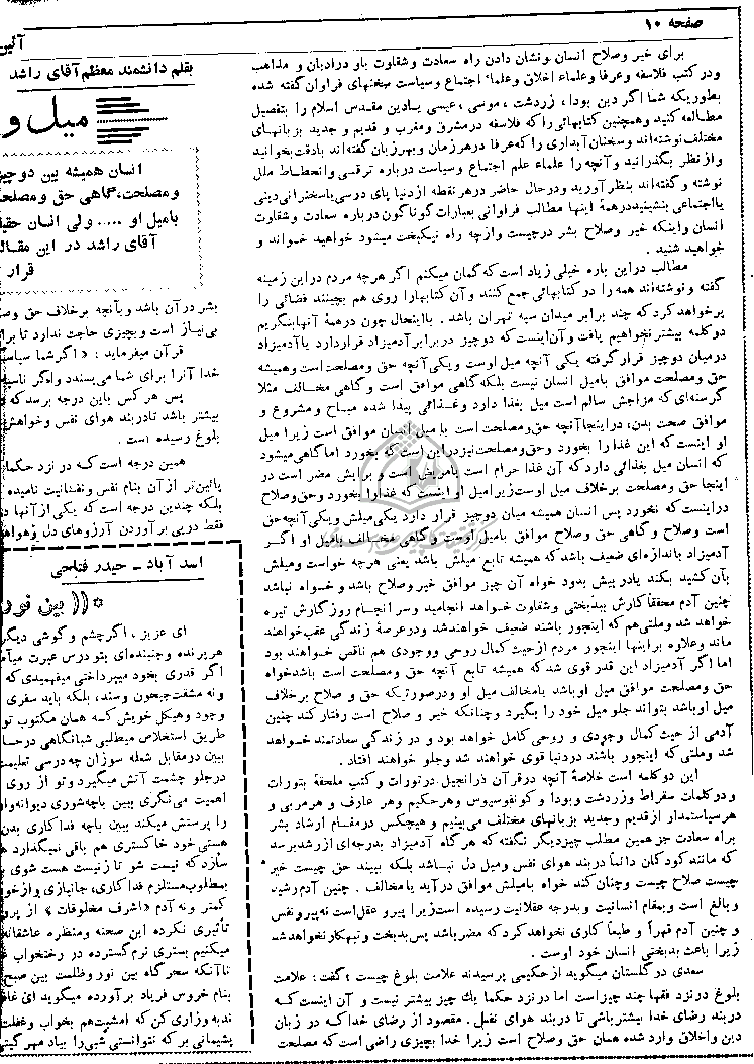 صفحه ۱۰
برای خیر وصلاح انسان ونشان دادن راه سعادت وشقاوت باو درادیان و مذاهب
ودر کتب فلاسفه وعرفا وعلماء اخلاق وعلماء اجتماع وسیاست سخنهای فراوان گفته شده
بطوریکه شما اگر دین بودا، زردشت ، موسی، عیسی یادین مقدس اسلام را بتفصیل
مطالعه کنید وهمچنین کتابهائی را که فلاسفه درمشرق ومغرب و قدیم و جدید بزبانهای
مختلف نوشته‌اند وسخنان آبداری را که عرفا درهرزمان وبهرزبان گفته‌اند بادقت بخوانید
واز نظر بگذرانید وآنچه را علماء علم اجتماع و سیاست درباره ترقی وانحطاط ملل
نوشته و گفته‌اند بنظر آورید ودرحال حاضر درهر نقطه ازدنیا پای درسی یاسخنرانی‌دینی
یااجتماعی بنشینید درهمهٔ اینها مطالب فراوانی بعبارات گوناگون درباره سعادت وشقاوت
انسان واینکه خیر وصلاح بشر درچیست وازچه راه نیکبخت میشود خواهید خواند و
خواهید شنید .
مطالب دراین باره خیلی زیاد است که گمان میکنم اگر هرچه مردم دراین زمینه
گفته و نوشته‌اند همه را در کتابهائی جمع کنند و آن کتابهارا روی هم بچینند فضائی را
برخواهد کرد که چند برابر میدان سپه تهران باشد . بااینحال چون درهمهٔ آنهابنگریم
دو کلمه بیشتر نخواهیم یافت وآن‌اینست که دوچیز دربرابر آدمیزاد قراردارد یاآدمیزاد
درمیان دوچیز قرار گرفته یکی آنچه میل اوست ویکی آنچه حق ومصلحت است وهمیشه
حق ومصلحت موافق بامیل انسان نیست بلکه گاهی موافق است و گاهی مخالف مثلا
گرسنه‌ای که مزاجش سالم است میل بغذا دارد وغذائی پیدا شده مباح و مشروع و
موافق صحت بدن، دراینجا آنچه حق ومصلحت است بامیل انسان موافق است زیرا میل
او اینست که این غذا را بخورد وحق ومصلحت نیز دراین است که بخورد اما گاهی میشود
که انسان میل بغذائی دارد که آن غذا حرام است یامریض است و برایش مضر است در
اینجا حق ومصلحت برخلاف میل اوست زیرامیل او اینست که غذارا بخورد وحق وصلاح
دراینست که نخورد پس انسان همیشه میان دوچیز قرار دارد یکی میلش ویکی آنچه حق
است وصلاح و گاهی حق وصلاح موافق بامیل اوست و گاهی مخالف بامیل او اگر
آدمیزاد باندازه‌ای ضعیف باشد که همیشه تابع میلش باشد یعنی هرچه خواست ومیلش
بآن کشید بکند یادرپیش بدود خواه آن چیز موافق خیر وصلاح باشد و خواه نباشد
چنین آدم محققا کارش ببدبختی وشقاوت خواهد انجامید وسر انجام روزگارش تیره
خواهد شد وملتی هم که اینجور باشند ضعیف خواهندشد ودرعرصهٔ زندگی عقب خواهند
ماند وعلاوه براینها اینجور مردم ازحیث کمال روحی ووجودی هم ناقص خواهند بود
اما اگر آدمیزاد این قدر قوی شد که همیشه تابع آنچه حق ومصلحت است باشد خواه
حق ومصلحت موافق میل اوباشد یامخالف میل او ودرصورتیکه حق و صلاح برخلاف
میل اوباشد بتواند جلو میل خود را بگیرد وچنانکه خیر و صلاح است رفتار کند چنین
آدمی از حیث کمال وجودی و روحی کامل خواهد بود و در زندگی سعادتمند خواهد
شد وملتی که اینجور باشند دردنیا قوی خواهند شد وجلو خواهند افتاد .
این دو کلمه است خلاصهٔ آنچه درقرآن درانجیل درتورات و کتب ملحقهٔ بتورات
ودر کلمات سقراط وزردشت وبودا و کونفوسیوس وهرحکیم وهر عارف و هرمربی و
هرسیاستمدار ازقدیم وجدید بزبانهای مختلف می‌بینیم و هیچکس درمقام ارشاد بشر
براه سعادت جز همین مطلب چیزدیگر نگفته که هر گاه آدمیزاد بدرجه‌ای ازرشد برسد
که مانند کودکان دائماً دربند هوای نفس ومیل دل نباشد بلکه ببیند حق چیست خیر
چیست صلاح چیست وچنان کند خواه بامیلش موافق درآید یامخالف . چنین آدم رشید
و بالغ است وبمقام انسانیت وبدرجه عقلانیت رسیده است زیرا پیرو عقل است نه پیرو نفس
و چنین آدم قهراً و طبعاً کاری نخواهد کرد که مضر باشد پس بدبخت و تبهکار نخواهد شد
زیرا باعث بدبختی انسان خود اوست .
سعدی در گلستان میگوید از حکیمی پرسیدند علامت بلوغ چیست ؟ گفت : علامت
بلوغ دو نزد فقها چند چیز است اما در نزد حکما یك چیز بیشتر نیست و آن اینست که
دربند رضای خدا بیشتر باشی تا دربند هوای نفس . مقصود از رضای خدا که در زبان
دین واخلاق وارد شده همان حق وصلاح است زیرا خدا بچیزی راضی است که مصلحت
آئین
بقلم دانشمند معظم آقای راشد
میل و
انسان همیشه بین دو چیز
ومصلحت، گاهی حق و مصلحت
بامیل او .... ولی انسان حقیقی
آقای راشد در این مقاله
قرار
بشر درآن باشد وبآنچه برخلاف حق وصلاح
بی‌نیاز است و بچیزی حاجت ندارد تا برای
قرآن میفرماید : « اگر شما سپاس
خدا آنرا برای شما می‌پسندد واگر ناسپاسی
پس هر کس باین درجه برسد که
بیشتر باشد تادربند هوای نفس وخواهش
بلوغ رسیده است .
همین درجه است که در نزد حکما
پائین‌تر از آن بنام نفس و نفسانیت نامیده
بلکه چندین درجه است که یکی از آنها
فقط درپی برآوردن آرزوهای دل وهواهای
اسد آباد - حیدر فتاحی
* (( بین نور
ای عزیز ، اگر چشم و گوشی دیگر
هر پرنده وجنبنده‌ای بتو درس عبرت
اگر قدری بخود میپرداختی میفهمیدی که
ونه مشقت جیحون وسند، بلکه باید سفری
وجود وهیکل خویش که همان مکتوب
طریق استخلاص میطلبی شبانگاهی درحال
ببین درمقابل شعله سوزان چه درسی تعلیمت
درجلو چشمت آتش میگیرد وتو از روی
اهمیت می‌نگری ببین باچه شوری دیوانه‌وار
را پرستش میکند ببین باچه فداکاری بدن
هستی خود خاکستری هم باقی نمیگذارد
سازد که نیست شو تا زنیست هست شوی
بمطلوب مستلزم فداکاری، جانبازی و ازخود
کمتر ونه آدم « اشرف مخلوقات » از
تأثیری نکرده این صحنه ومنظره عاشقانه
میکنیم بستری نرم گسترده در رختخواب
ناآنکه سحر گاه بین نور وظلمت بین صبح
بنام خروس فریاد برآورده میگوید ای
ندبه وزاری کن که امشبت هم بخواب وغفلت
پشیمانی بر که نتوانستی شبی را بیاد مهر